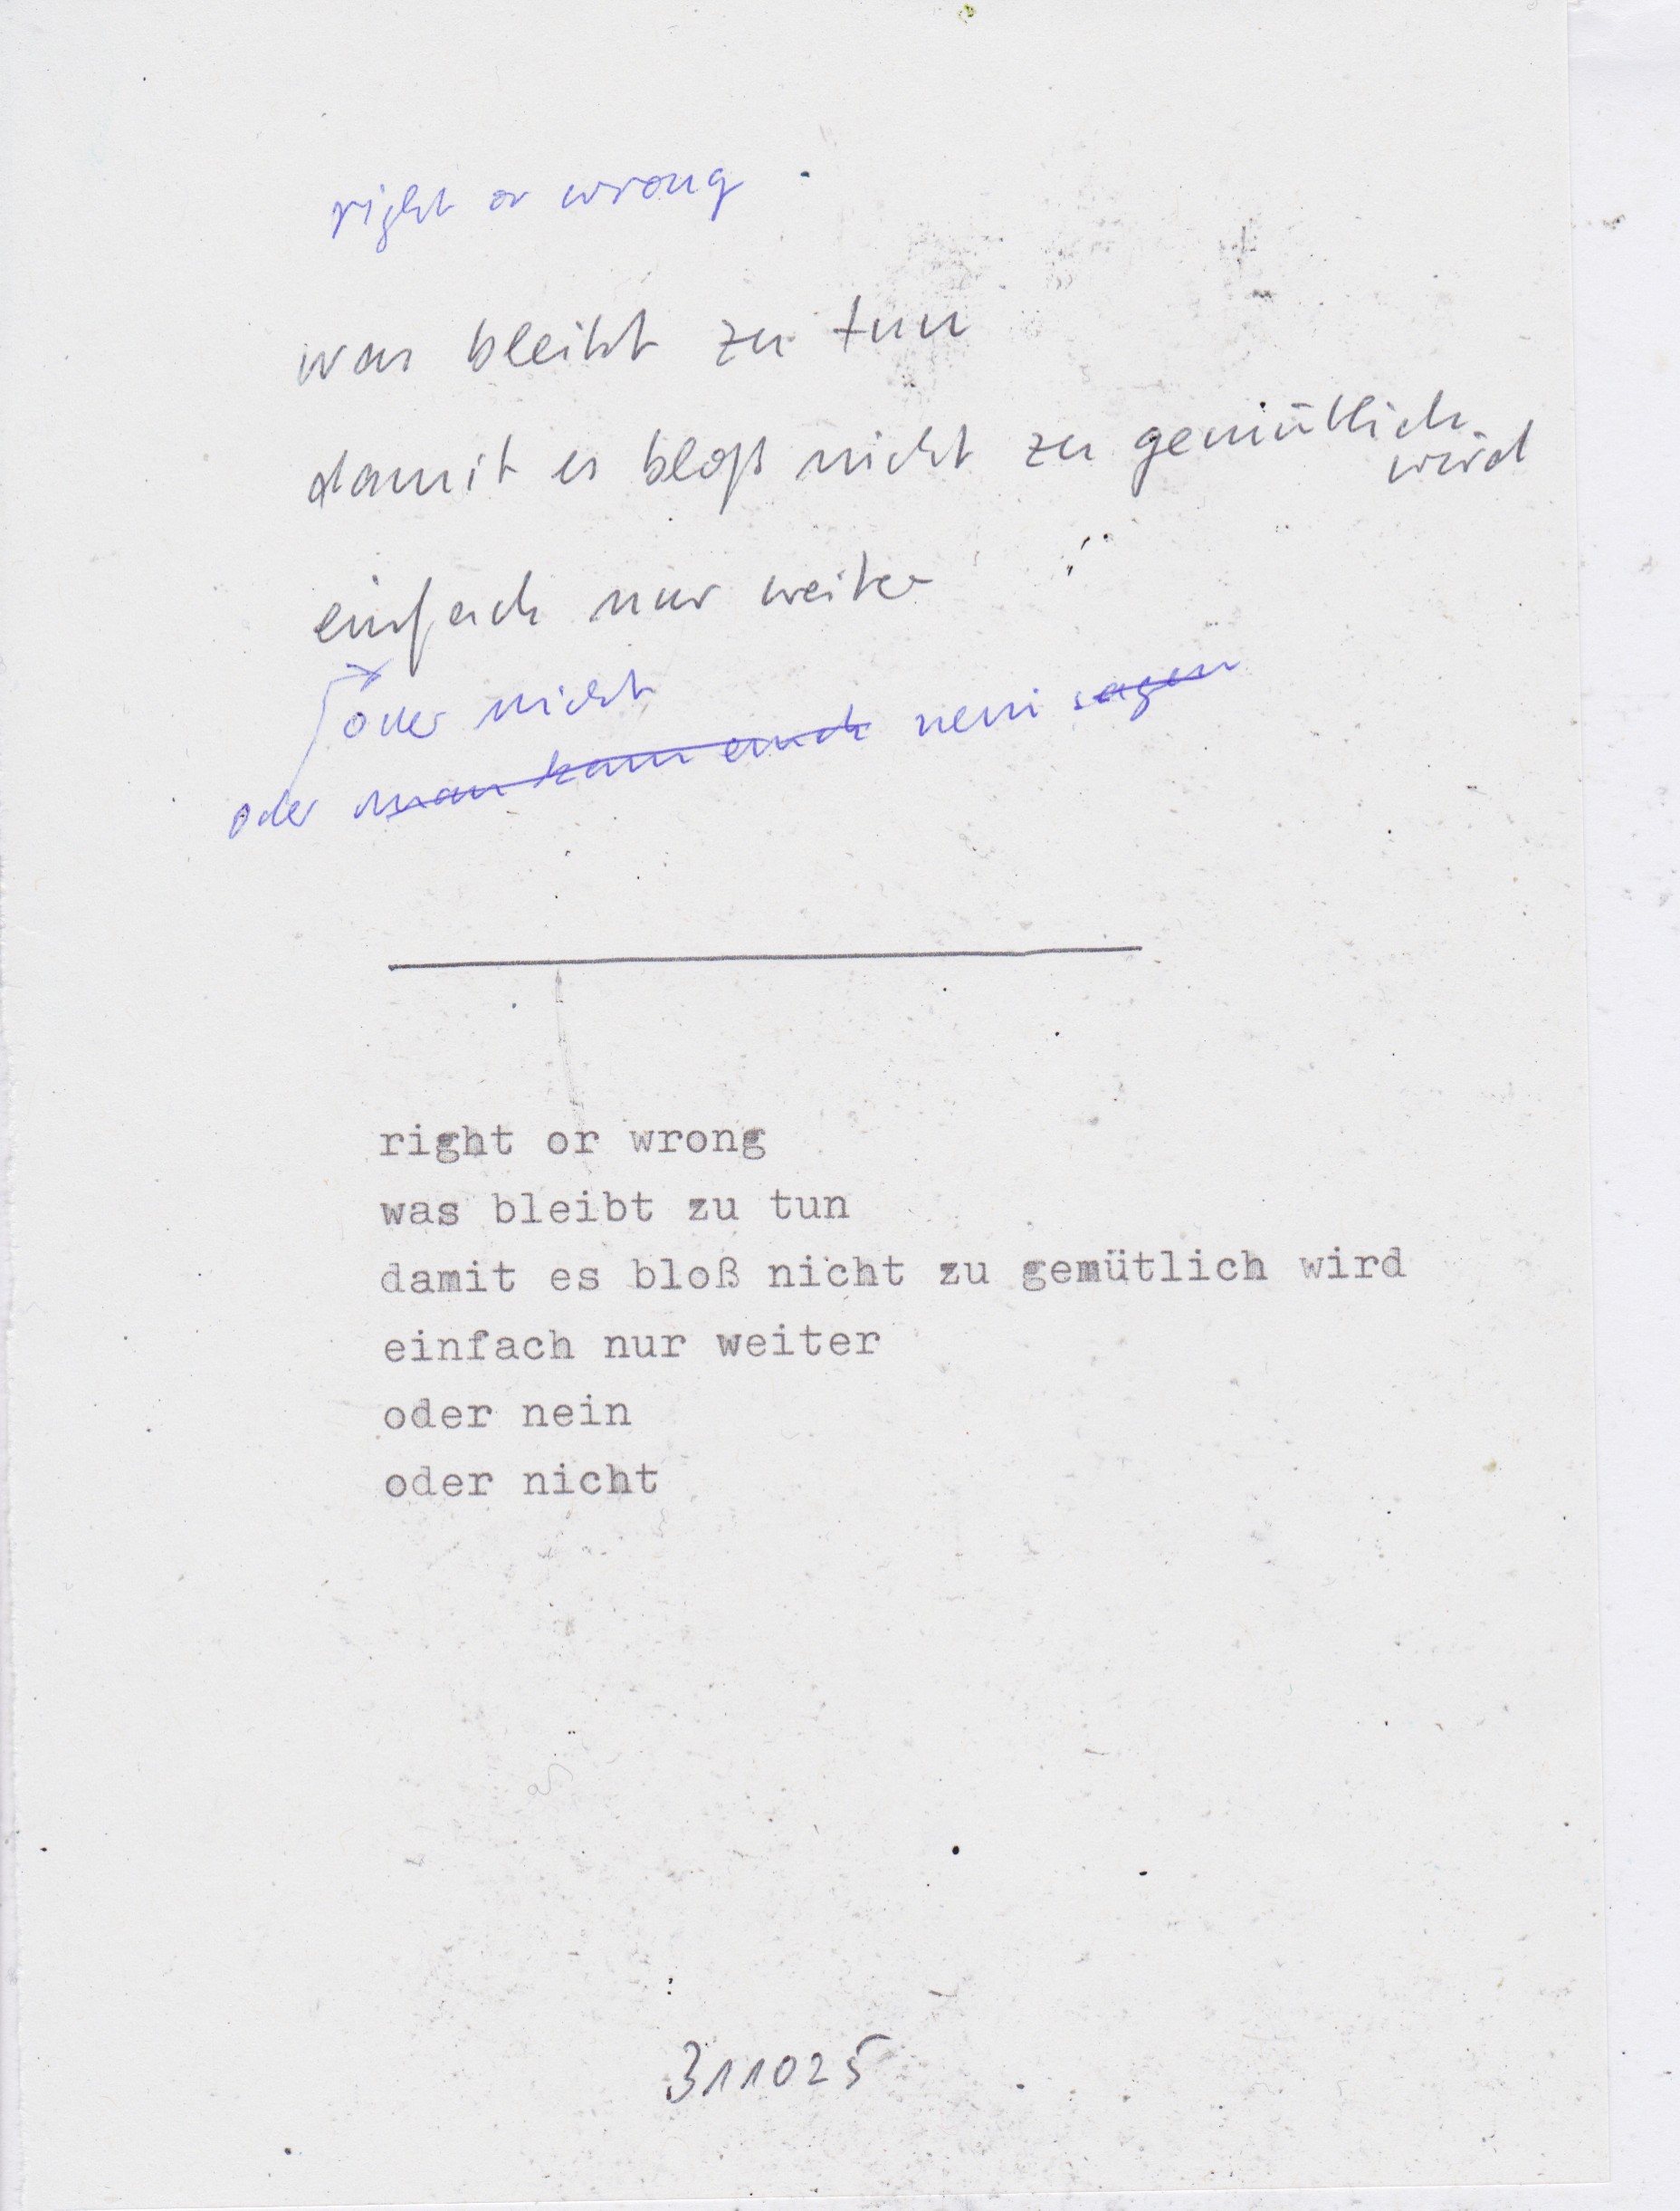 right or wrong
was bleibt zu tun
damit es bloß nicht zu gemütlich
wird
einfach nur weiter
oder nicht
oder man kann auch nein sagen
right or wrong
was bleibt zu tun
damit es bloß nicht zu gemütlich wird
einfach nur weiter
oder nein
oder nicht
311025